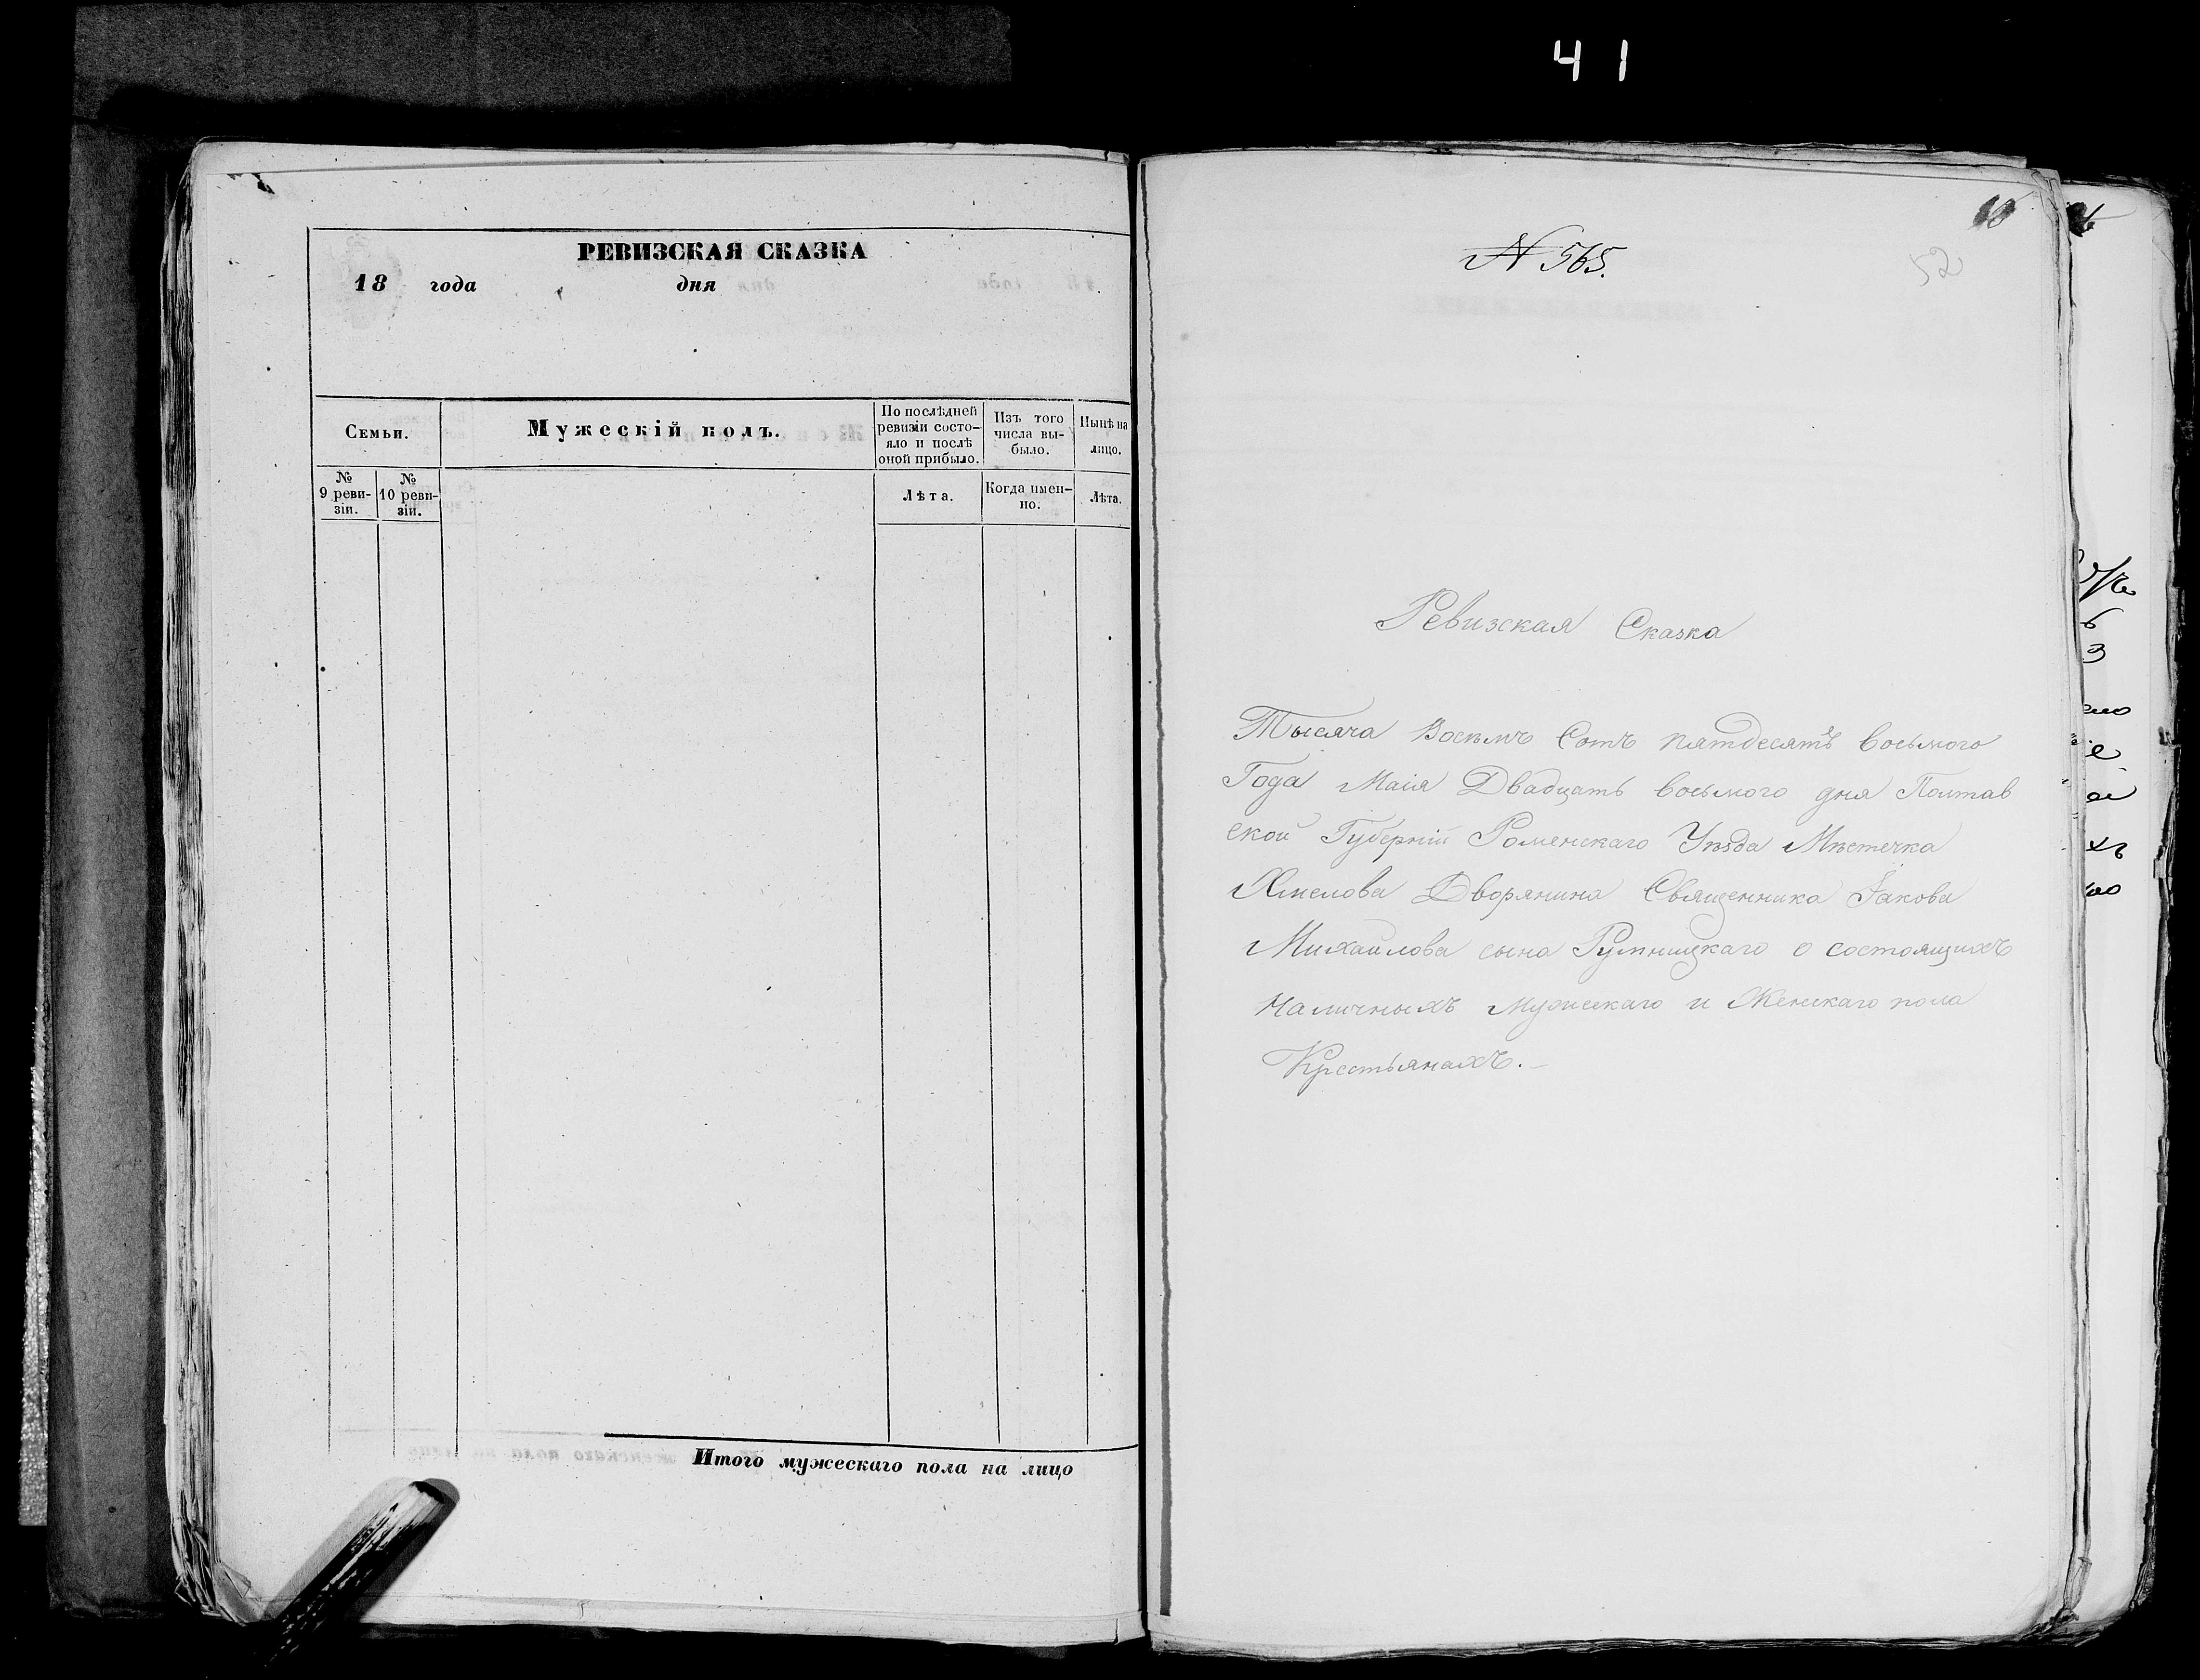 41
РЕВИЗСКАЯ СКАЗКА
18 года дня
Семьи.
Мужескій полъ.
По послѣдней
ревизіи состо-
яло и послѣ
оной прибыло.
Изъ того
числа вы-
было.
Нынѣ на
лицо.
№
9 реви-
зіи.
№
10 реви-
зіи.
Лѣта.
Когда имен-
но.
Лѣта.
Итого мужескаго пола на лицо
№ 565.
52
Ревизская Сказка
Тысяча Восемъ Сотъ пятдесятъ восьмого
Года Маія Двадцать восьмого дня Полтав
ской Губерніи Роменскаго Уѣзда Мѣстечка
Хмелова Дворянина Священника Іакова
Михайлова сына о состоящихъ
Наличныхъ Мужескаго и Женскаго пола
Крестьянахъ.-